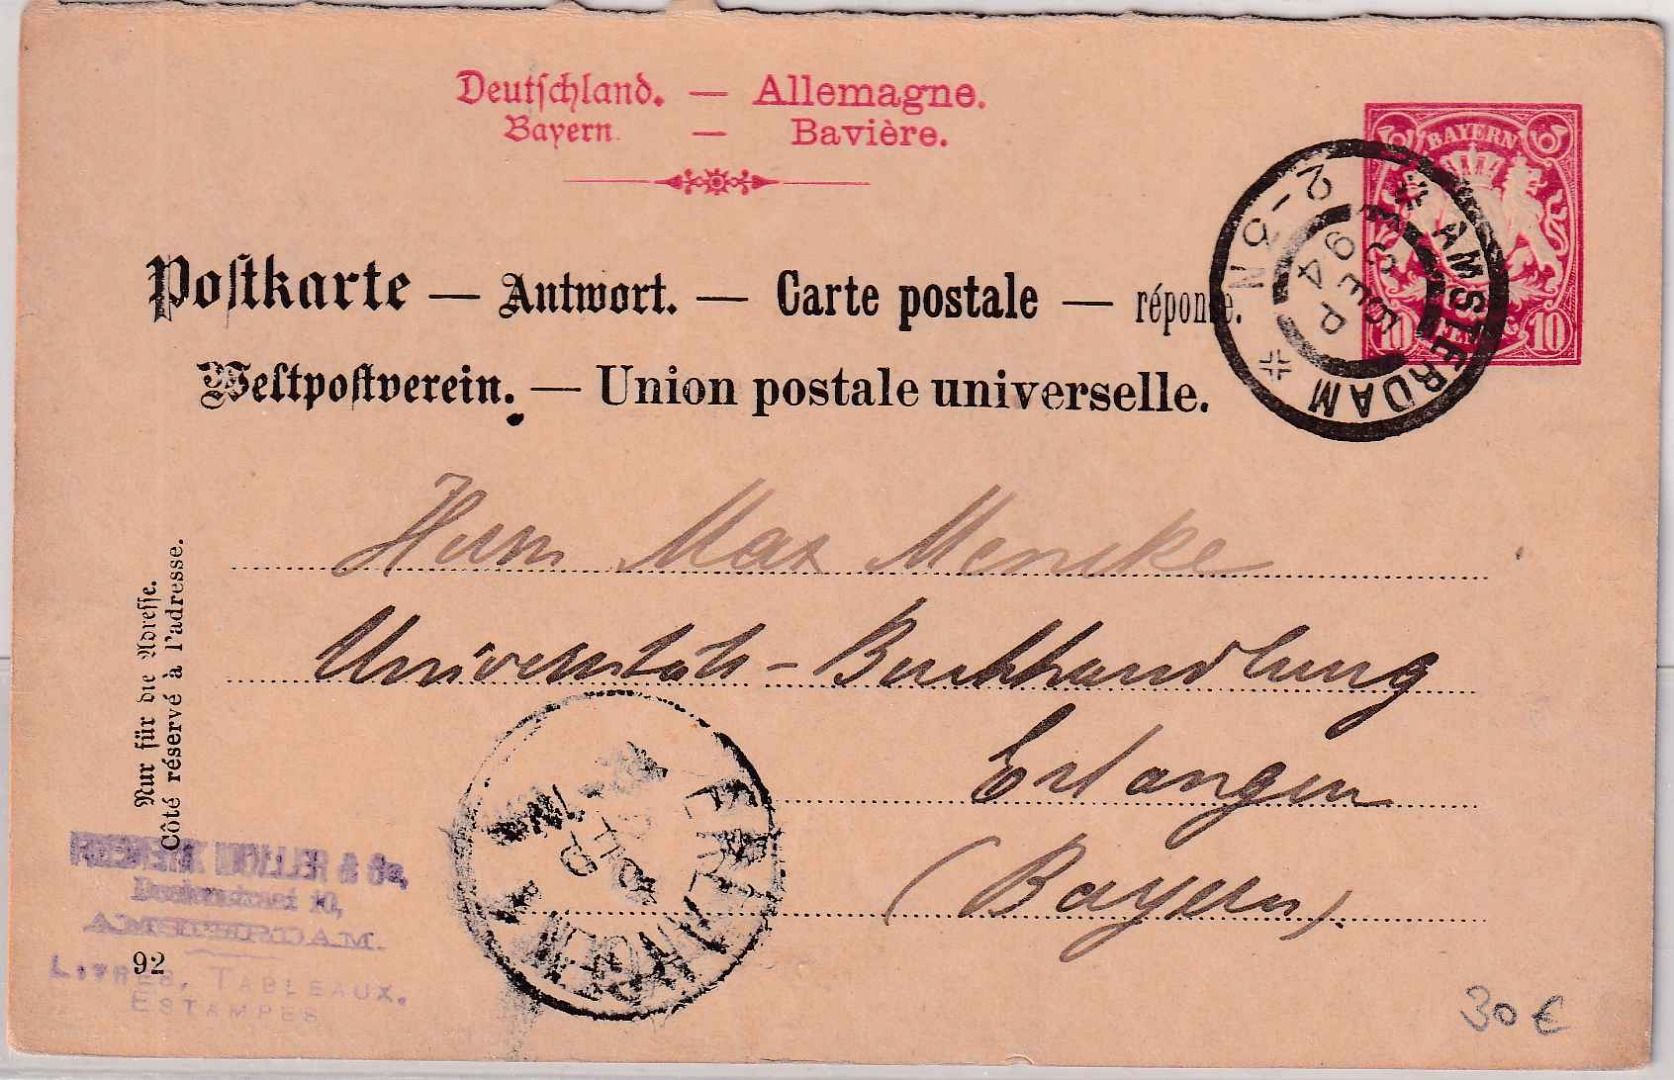 Deutschland. — Allemagne.
Bayern — Bavière.
BAYERN
10 10
AMSTERDAM
6 SEP
94
2-3 N
Postkarte — Antwort. — Carte postale — réponse.
Weltpostverein. — Union postale universelle.
Herrn Max Mencke
Universitäts-Buchhandlung
Erlangen
(Bayern).
Nur für die Adresse.
Côté réservé à l'adresse.
ERLANGEN
7
SEP
MULLER & Co,
10,
AMSTERDAM.
92
LIVRES, TABLEAUX.
ESTAMPES
30 €